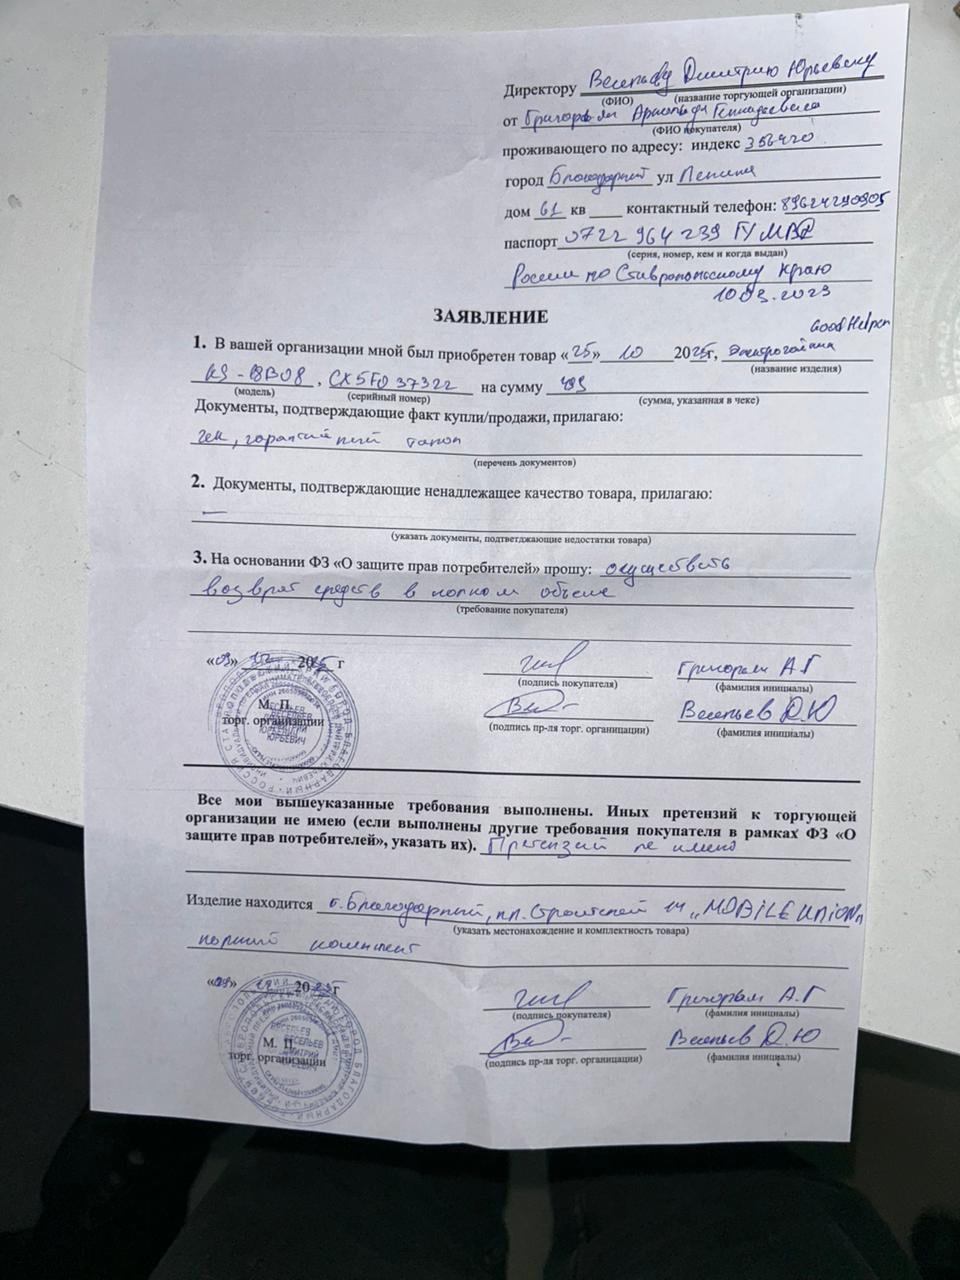 Директору Весельеву Дмитрию Юрьевичу
(ФИО) (название торгующей организации)
от Григорьян Геннадьевича
(ФИО покупателя)
проживающего по адресу: индекс 356420
город Благодарный ул Ленина
дом 61 кв ____ контактный телефон: 89624290905
паспорт 0722 964 239 ГУ МВД
(серия, номер, кем и когда выдан)
России по Ставропольскому краю
10.03.2023
ЗАЯВЛЕНИЕ
Good Helper
1. В вашей организации мной был приобретен товар «25» 10 2025г, Электрочайник
(название изделия)
KS-18B08, CX5F037322 на сумму 499
(модель) (серийный номер) (сумма, указанная в чеке)
Документы, подтверждающие факт купли/продажи, прилагаю:
чек, гарантийный талон
(перечень документов)
2. Документы, подтверждающие ненадлежащее качество товара, прилагаю:
—
(указать документы, подтветджающие недостатки товара)
3. На основании ФЗ «О защите прав потребителей» прошу: осуществить
возврат средств в полном объеме
(требование покупателя)
«09» 12 2025 г
Григорьян А.Г
(подпись покупателя) (фамилия инициалы)
М. П.
торг. организации
ВЕСЕЛЬЕВ
ДМИТРИЙ
ЮРЬЕВИЧ
Весельев Д.Ю
(подпись пр-ля торг. органицации) (фамилия инициалы)
Все мои вышеуказанные требования выполнены. Иных претензий к торгующей
организации не имею (если выполнены другие требования покупателя в рамках ФЗ «О
защите прав потребителей», указать их). Претензий не имею
Изделие находится г. Благодарный, пл. Строителей "MOBILE UNION"
(указать местонахождение и комплектность товара)
полный комплект
«09» 12 20 г
Григорьян А.Г
(подпись покупателя) (фамилия инициалы)
М. П.
торг. организации
ВЕСЕЛЬЕВ
ДМИТРИЙ
ЮРЬЕВИЧ
Весельев Д.Ю
(подпись пр-ля торг. органицации) (фамилия инициалы)